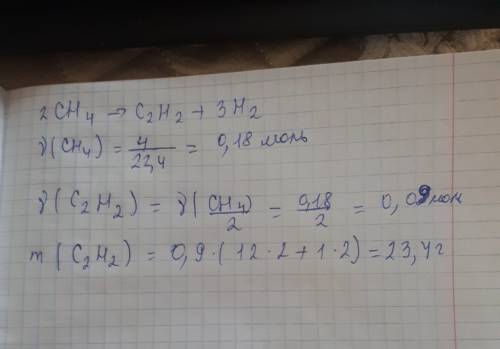 2CH₄ → C₂H₂ + 3H₂
γ(CH₄) = 4/22,4 = 0,18 моль
γ(C₂H₂) = γ(CH₄)/2 = 0,18/2 = 0,09 мол
m(C₂H₂) = 0,9·(12·2+1·2) = 23,4 г